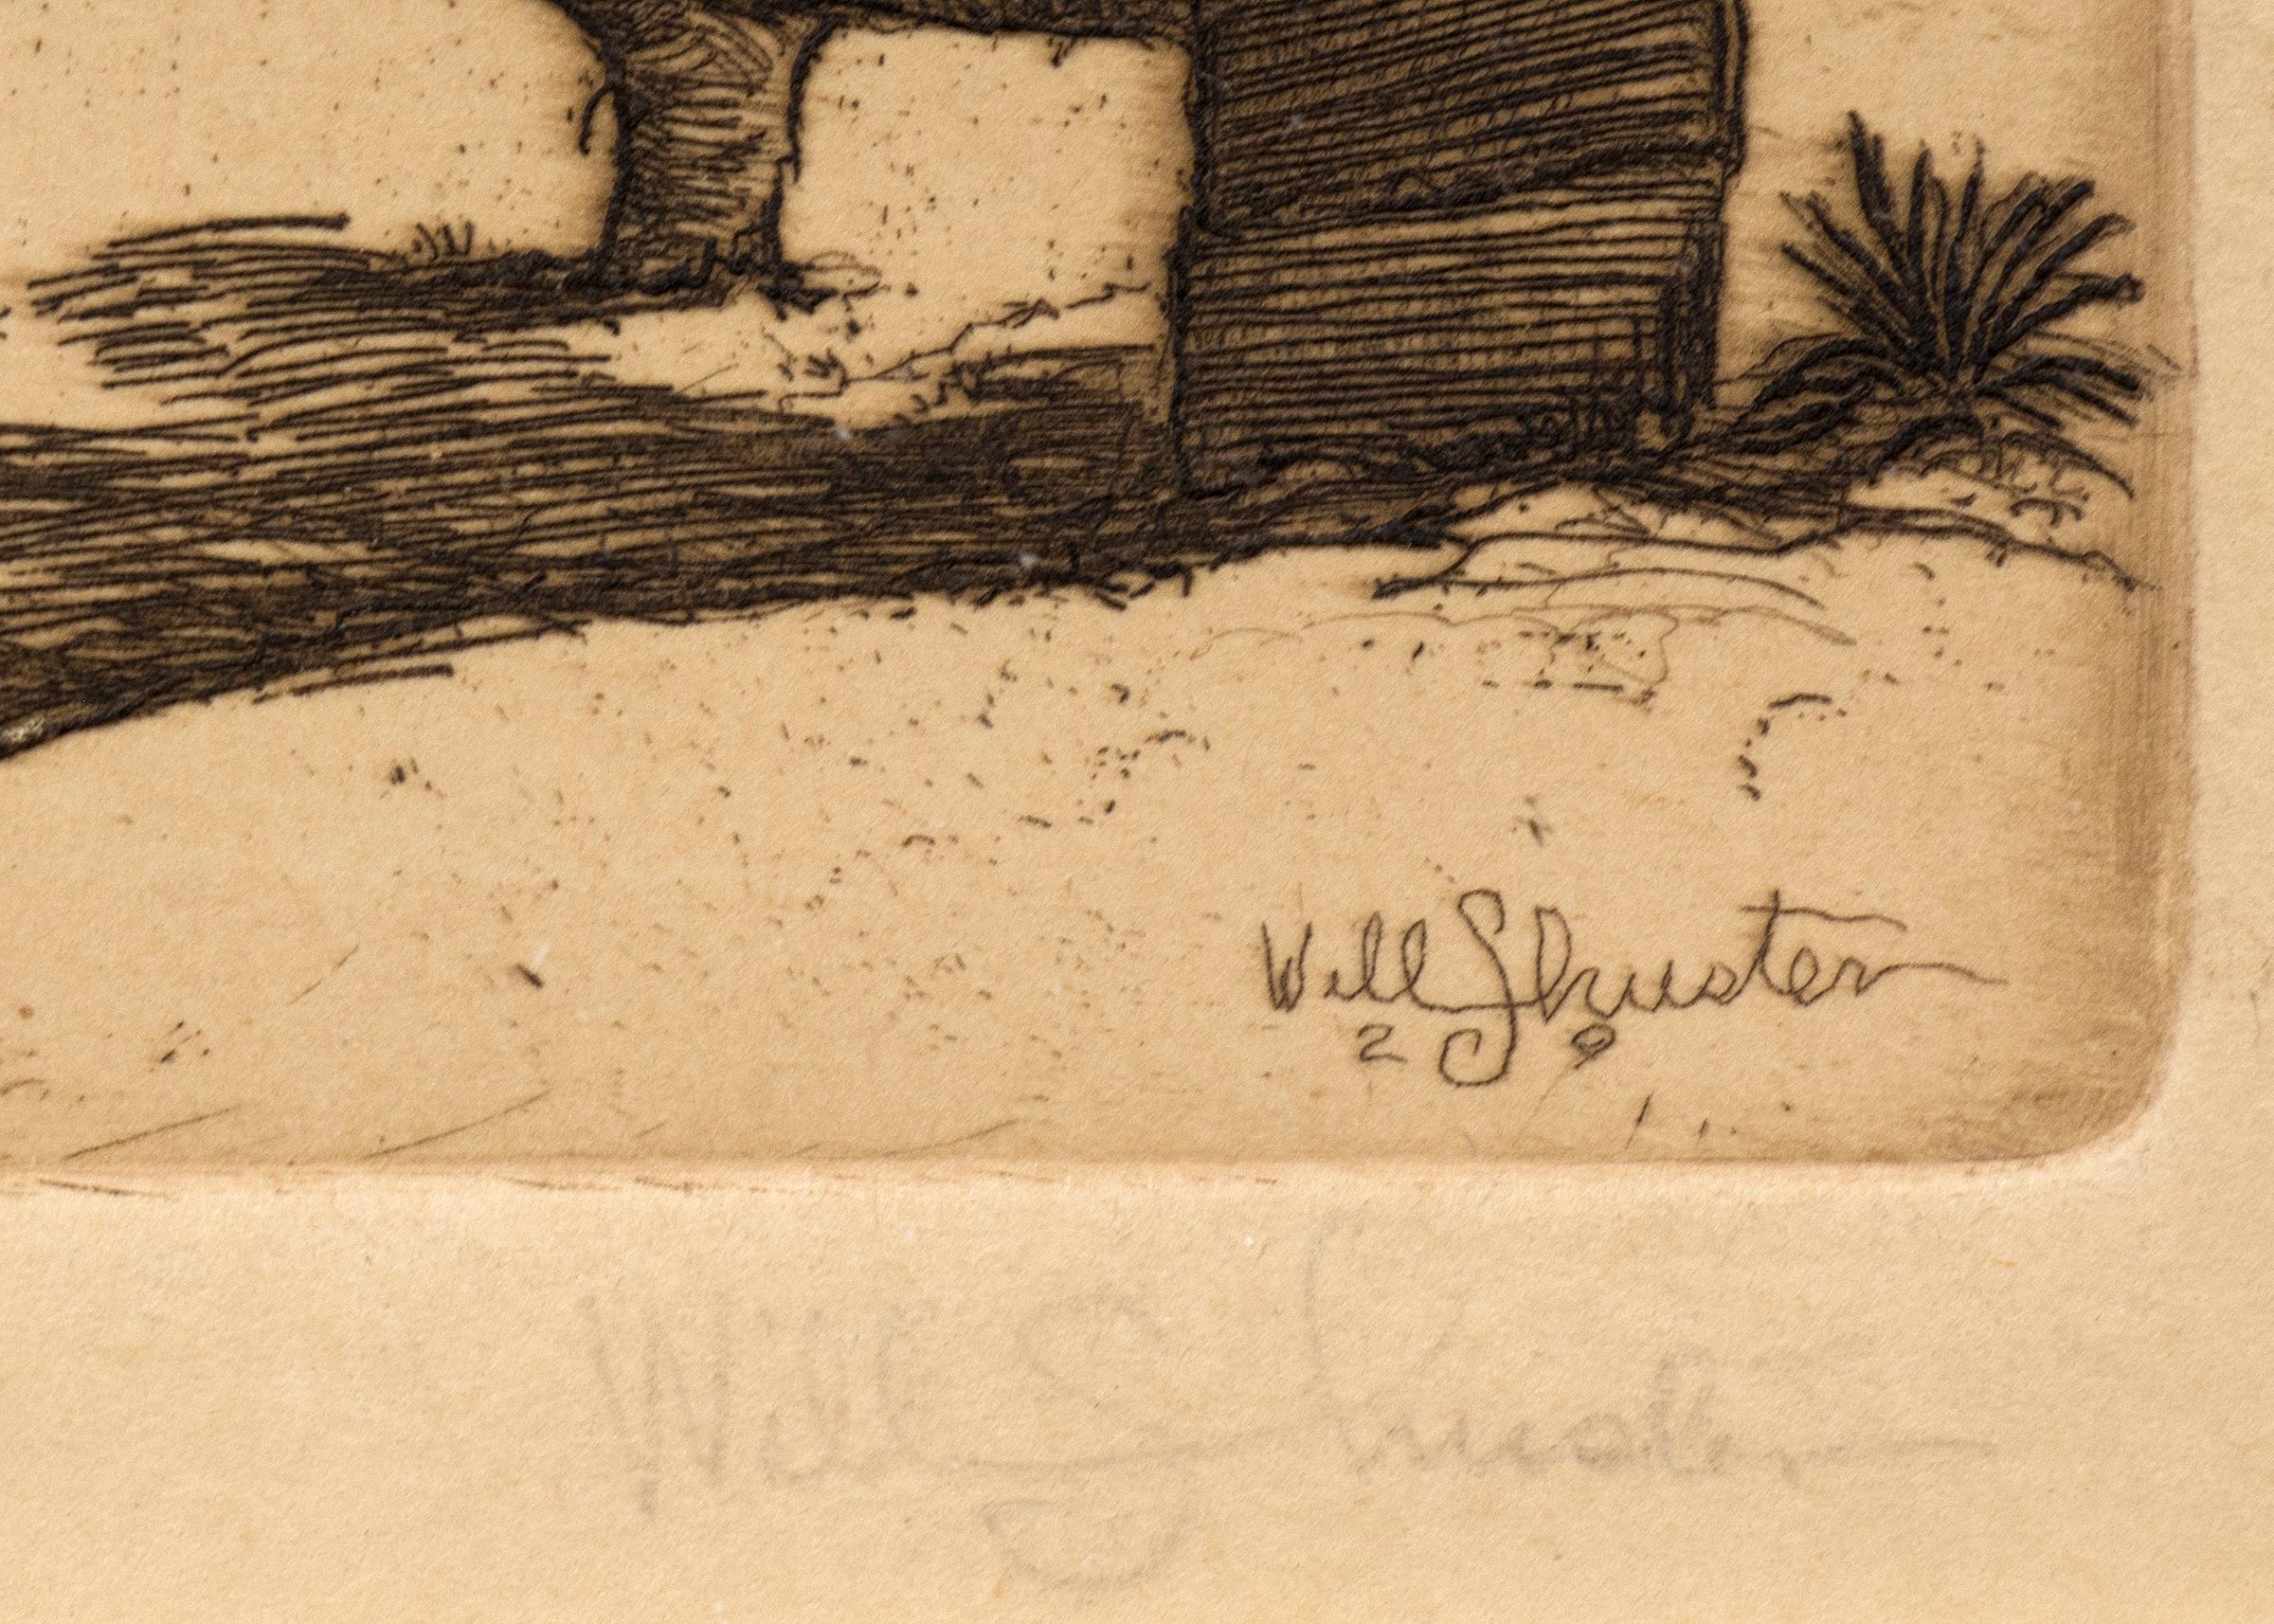 Will Shuster
29
Will Shuster